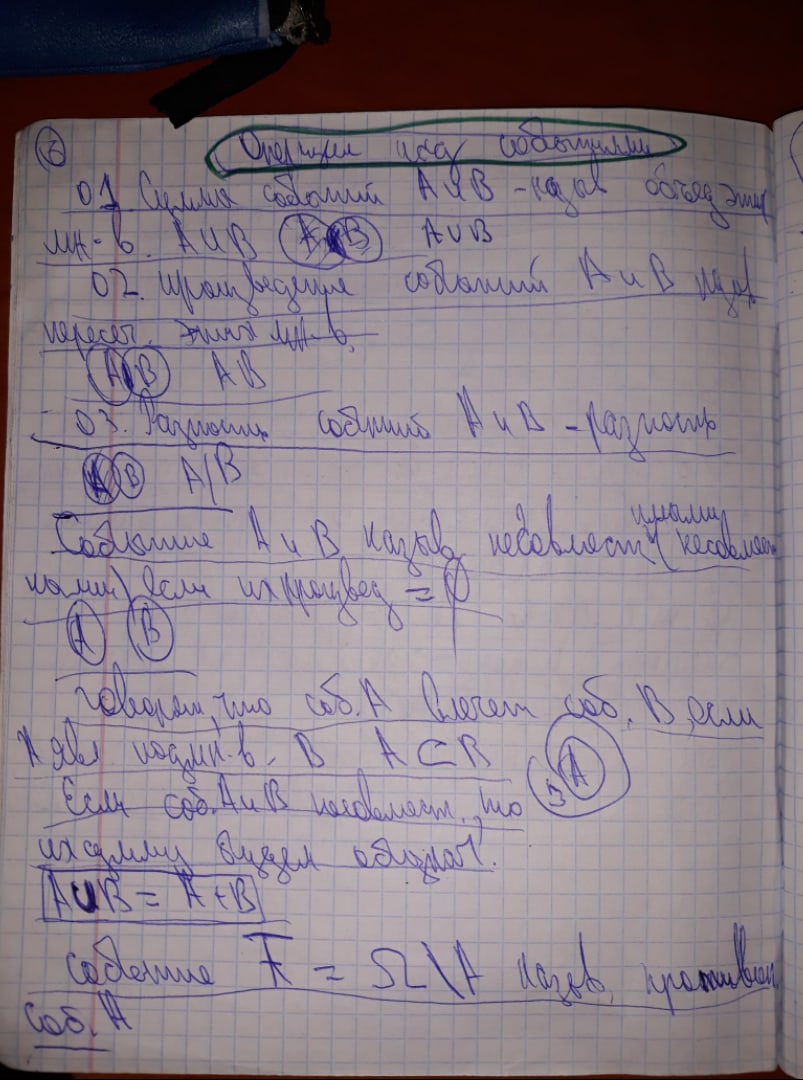 6 Операции над событиями
01. Сумма событий A и B - назыв объед этих
мн-в. A∪B A B A∪B
02. Произведение событий A и B назв
пересеч. этих мн-в.
A B AB
03. Разность событий A и B - разность
A B A|B
Событие A и B назыв несовмест (несовмест
ными) если их произвед = ∅
A B
Говорят, что соб. A влечет соб. B, если
A явл подмн-в. B A⊂B A B
Если соб. A и B несовмест, то
их сумму будем обознач.
A∪B = A+B
событие Ā = Ω\A назыв. противоп
соб. A